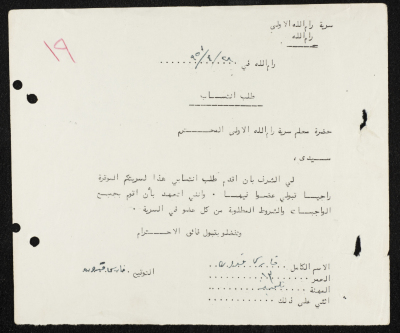 سرية رام الله الاولى
رام الله
١٩
رام الله في
طلب انتساب
حضرة معلم سرية رام الله الاولى المحترم
سيدي ،
لي الشرف بان اقدم طلب انتسابي هذا لسريتكم الموقرة
راجيا قبولي عضوا فيها . وانني اتعهد بأن اقوم بجميع
الواجبات والشروط المطلوبة من كل عضو في السرية .
وتفضلو بقبول فائق الاحترام
الاسم الكامل
التوقيع
العمر
المهنة
اثني على ذلك